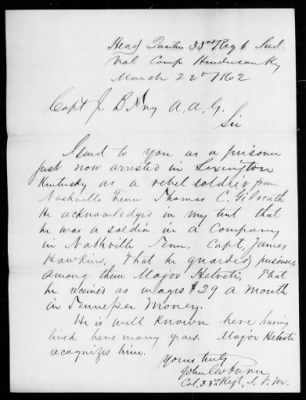 Head Quarters 33rd Regt Ind.
Vol Camp Henderson Ky
March 22d 1862
Capt J. B Fry A. A. G.
Sir
I send to you as a prisoner
just now arrested in Lexington
Kentucky as a rebel soldier from
Nashville Tenn Thomas C. Gilreath
He acknowledged in my tent that
he was a soldier in a Company
in Nashville Tenn. Capt. James
Hawkins, That he guarded prisoners
among them Major Helveti, that
he received as wages $29 a month
in Tennessee Money.
He is well known here having
lived here many years. Major Helveti
recognizes him.
Yours truly
John Coburn
Col. 33d Regt. I. V.